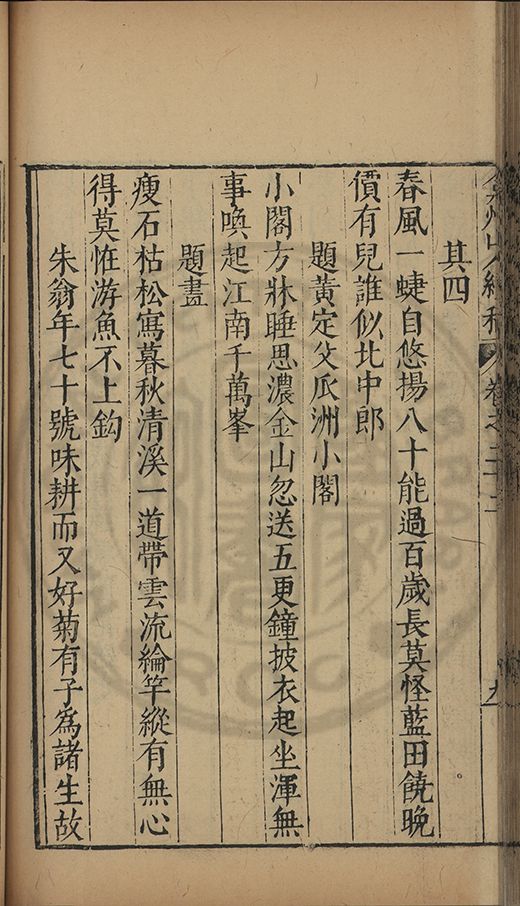 其四
春風一蜨自悠揚八十能過百歲長莫怪藍田饒晚
價有兒誰似北中郎
題黃定父瓜洲小閣
小閣方牀睡思濃金山忽送五更鐘披衣起坐渾無
事喚起江南千萬峯
題畫
瘦石枯松寫暮秋清溪一道帶雲流綸竿縱有無心
得莫恠游魚不上鈎
朱翁年七十號味耕而又好菊有子為諸生故